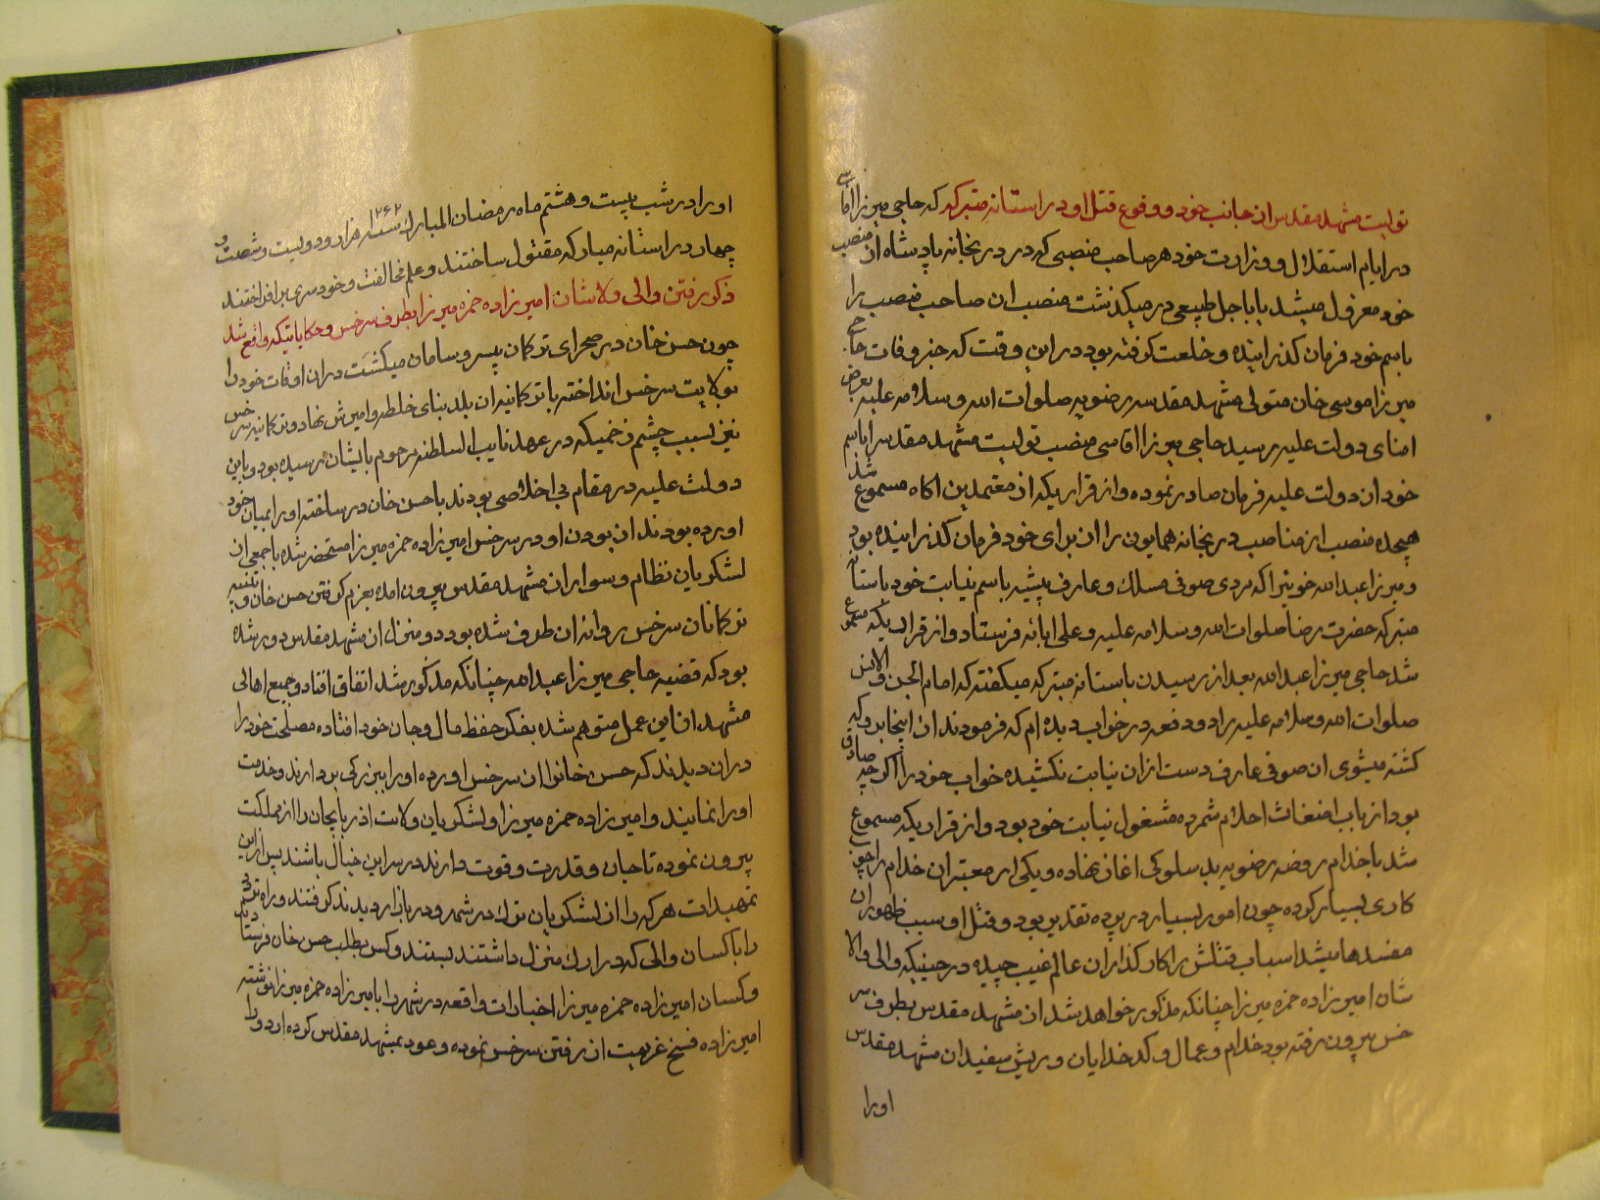 تولیت مشهد مقدس از جانب خود و وقوع قتل او در آستانه متبرکه که حاجی میرزا آقاسی
در ایام استقلال و وزارت خود هر صاحب منصبی که در دربخانه پادشاه از منصب
خود معزول میشد یا باجل طبیعی در میکذشت منصب ان صاحب منصب را
باسم خود فرمان کذرانیده و خلعت کرفته بود در این وقت که خبر وفات حاجی
میرزا موسی خان متولی مشهد مقدسه رضویه صلوات الله وسلامه علیه بعرض
امنای دولت علیه رسید حاجی میرزا اقاسی منصب تولیت مشهد مقدس را باسم
خود از دولت علیه فرمان صادر نموده و از قراریکه از معتمدین اکاه مسموع شد
هیجده منصب از مناصب دربخانه همایون را از برای خود فرمان کذرانیده بود
و میرزا عبدالله خویی را که مردی صوفی مسلک و عارف پیشه باسم نیابت خود باستانه
متبرکه حضرت رضا صلوات الله وسلامه علیه وعلی ابائه فرستاد و از قراریکه مسموع
شد حاجی میرزا عبدالله بعد از رسیدن باستانه متبرکه میکفته که امام الجن والانس
صلوات الله وسلامه علیه را دو دفعه در خواب دیده ام که فرمودند از اینجا برو که
کشته میشوی ان صوفی عارف دست از ان نیابت نکشیده خواب خود را اکرچه صادق
بود از باب اضغاث احلام شمرده مشغول نیابت خود بود و از قراریکه مسموع
شد با خدام روضه رضویه بد سلوکی اغاز نهاده و یکی از معتبران خدام را
کاری بسیار کرده چون امور بسیار در پرده تقدیر بود و قتل او سبب ظهور ان
مفسدها میشد اسباب قتلش را کارکذاران عالم غیب چیده در حینیکه والی والا
شان امیرزاده حمزه میرزا چنانکه مذکور خواهد شد از مشهد مقدس بطرف سر
خس بیرون رفته بود خدام و عمال و کدخدایان و ریش سفیدان مشهد مقدس
اورا
اورا در شب بیست و هشتم ماه رمضان المبارک سنه ۱۲۶۲ هزار و دویست و شصت و
چهار در استانه مبارکه مقتول ساختند و علم مخالفت و خودسری برافراختند
ذکر رفتن والی والاشان امیرزاده حمزه میرزا بطرف سرخس و حکایاتیکه واقع شد
چون حسن خان در صحرای ترکمان بیسر و سامان میکشت در ان اوقات خود را
بولایت سرخس انداخته با ترکمانیه ان بلد بنای خلطه وامیزش نهاد و ترکمانیه سرخس
نیز بسبب چشم زخمیکه در عهد نایب السلطنه مرحوم بایشان رسیده بود و باین
دولت علیه در مقام بی اخلاصی بودند با حسن خان در ساخته اورا بمیان خود
اورده بودند از بودن او در سرخس امیرزاده حمزه میرزا مستحضر شده با جمعی از
لشکریان نظام و سواران مشهد مقدس بیرون امده بعزم کرفتن حسن خان و تنبیه
ترکمانان سرخس روانه ان طرف شده بود دو منزل از مشهد مقدس دور شده
بود که قضیه حاجی میرزا عبدالله چنانکه مذکور شد اتفاق افتاد و جمیع اهالی
مشهد از این عمل متوهم شده بفکر حفظ مال و جان خود افتاده مصلحت خود را
در ان دیدند که حسن خان را از سرخس اورده اورا ببزرکی بردارند و خدمت
اورا نمایند و امیرزاده حمزه میرزا و لشکریان ولایت اذربایجان را از مملکت
بیرون نموده تا جان و قدرت و قوت دارند در سر این خیال باشند پس از این
تمهیدات هر که را از لشکریان ترک در شهر و در بازار دیدند کرفتند و راه تردد
را با کسان والی که در ارک منزل داشتند بستند و کس بطلب حسن خان فرستادند
و کسان امیرزاده حمزه میرزا اخبارات واقعه در شهر را بامیرزاده حمزه میرزا نوشته
امیرزاده فسخ عزیمت از رفتن سرخس نموده و عود بمشهد مقدس کرده اردو را